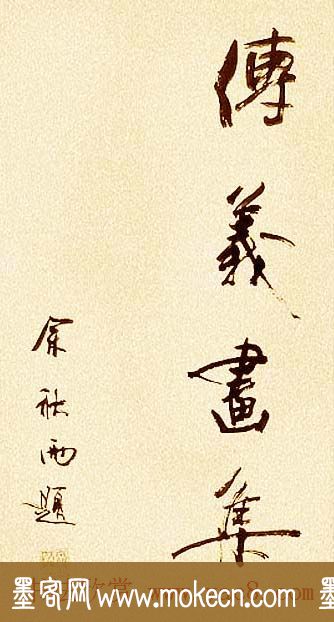 傳義畫集
余秋雨題
墨客网 www.mokecn.com